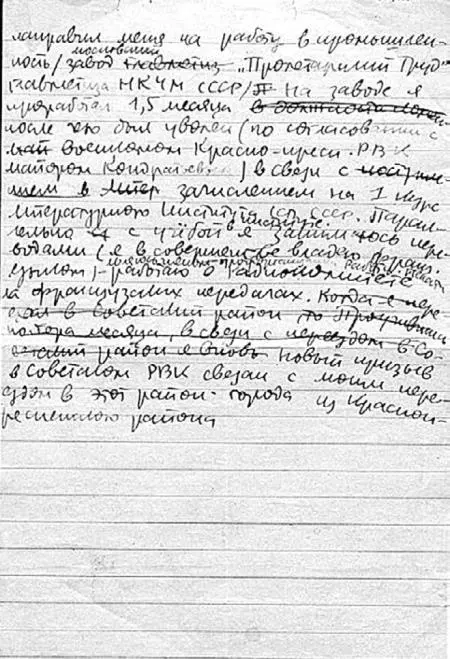 направил меня на работу в промышлен-
московский
ность /завод главметиз „Пролетарский Труд"
главметиза НКЧМ СССР/ На заводе я
проработал 1,5 месяца в должности
после чего был уволен (по согласовании с
военкомом Красно-пресн. РВК
майором Кондратьевым) в связи с
зачислением на 1 курс
Литературного Института ССП СССР. Парал-
в институте
лельно с учёбой я занимаюсь пере-
водами (я в совершенстве владею франц.
языком) - работаю в Радиокомитете
на французских передачах. Когда я пере-
ехал в Советский район
полтора месяца, в связи с переездом в Со-
ветский район я вновь Новый призыв
в Советском РВК связан с моим пере-
ездом в этот район города из Красно-
пресненского района